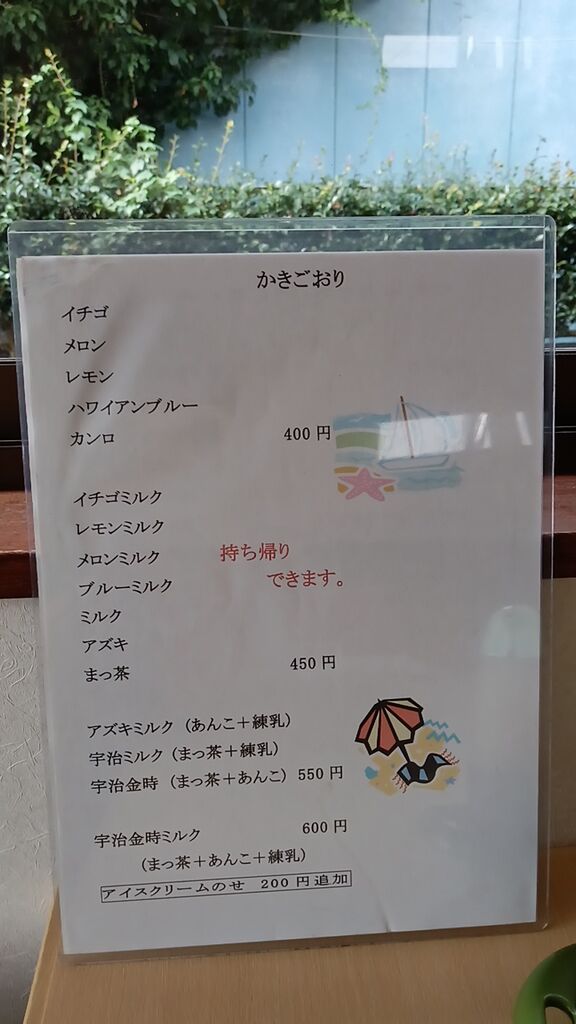 かきごおり
イチゴ
メロン
レモン
ハワイアンブルー
カンロ 400円
イチゴミルク
レモンミルク
メロンミルク 持ち帰り
ブルーミルク できます。
ミルク
アズキ
まっ茶 450円
アズキミルク (あんこ+練乳)
宇治ミルク (まっ茶+練乳)
宇治金時 (まっ茶+あんこ) 550円
宇治金時ミルク 600円
(まっ茶+あんこ+練乳)
アイスクリームのせ 200円追加